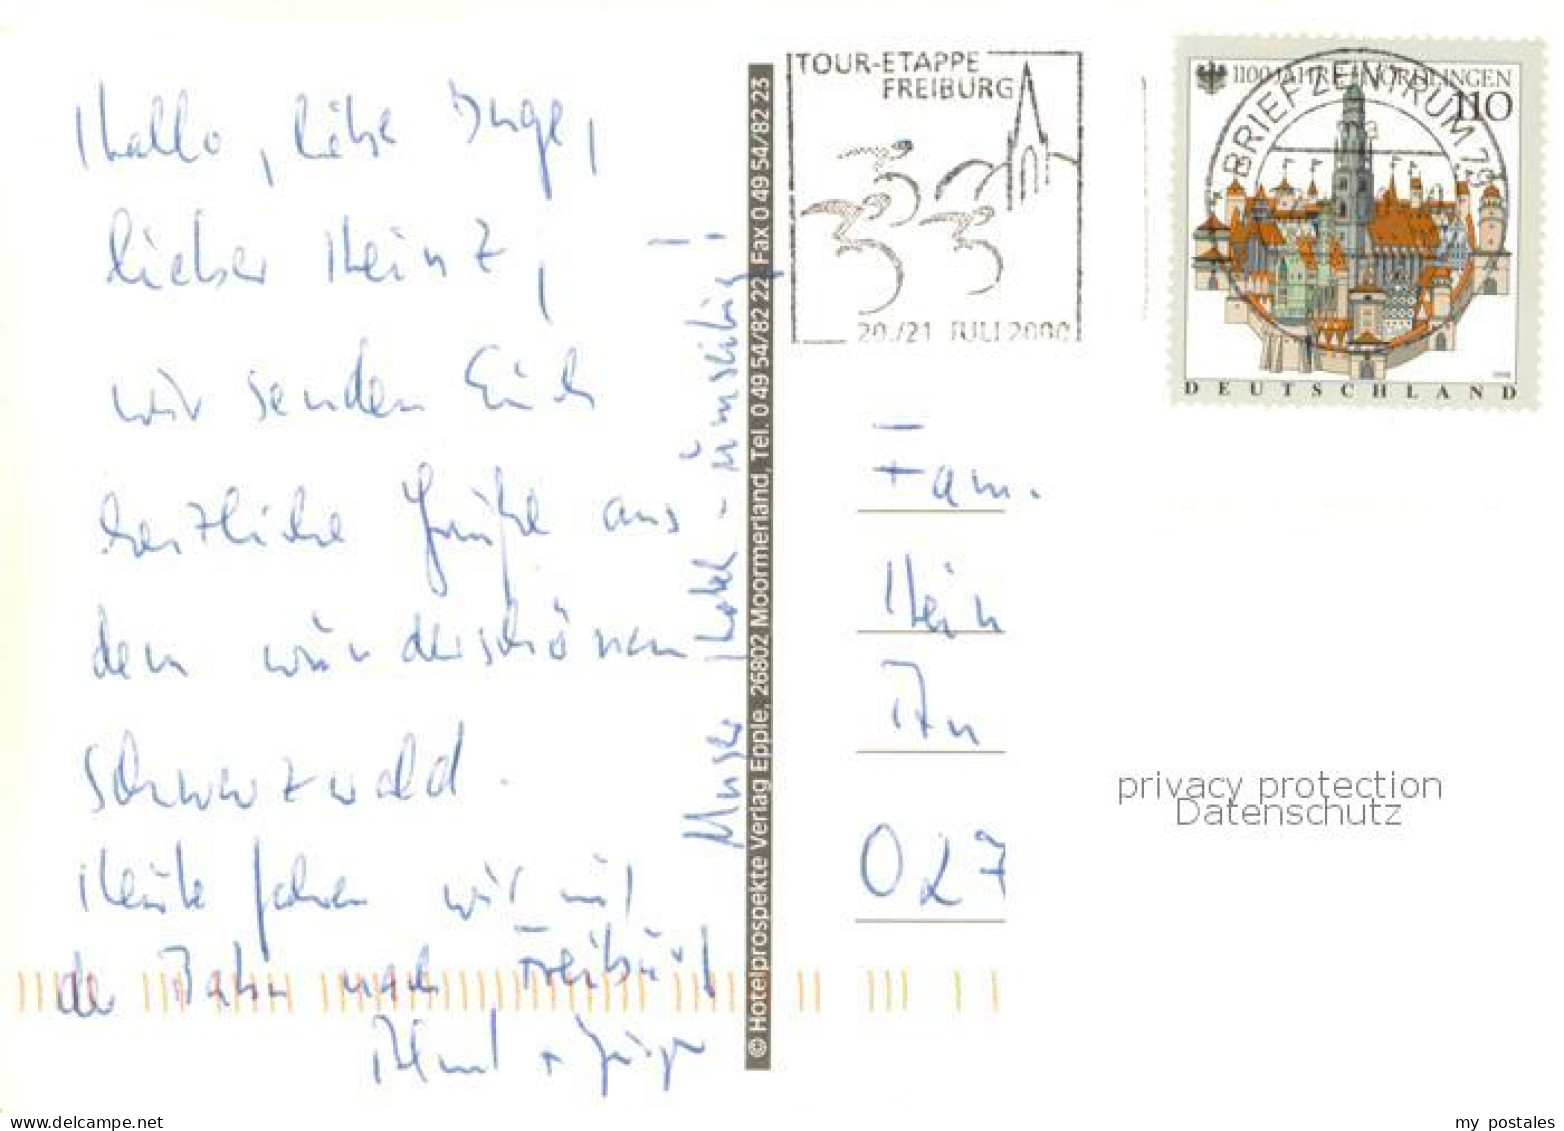 Hallo, liebe Inge,
lieber Heinz,
wir senden Euch
herzliche Grüße aus
dem wunderschönen
Schwarzwald.
Heute fahren wir mit
der Bahn nach Freiburg
+ Jürgen
Unser Hotel - umseitig!
© Hotelprospekte Verlag Epple, 26802 Moormerland, Tel. 0 49 54/82 22 Fax 0 49 54/82 23
TOUR-ETAPPE
FREIBURG
20./21 JULI 2000
1100 JAHRE NÖRDLINGEN
110
BRIEFZENTRUM 79
a
DEUTSCHLAND
Fam.
Hein
027
privacy protection
Datenschutz
www.delcampe.net
my_postales